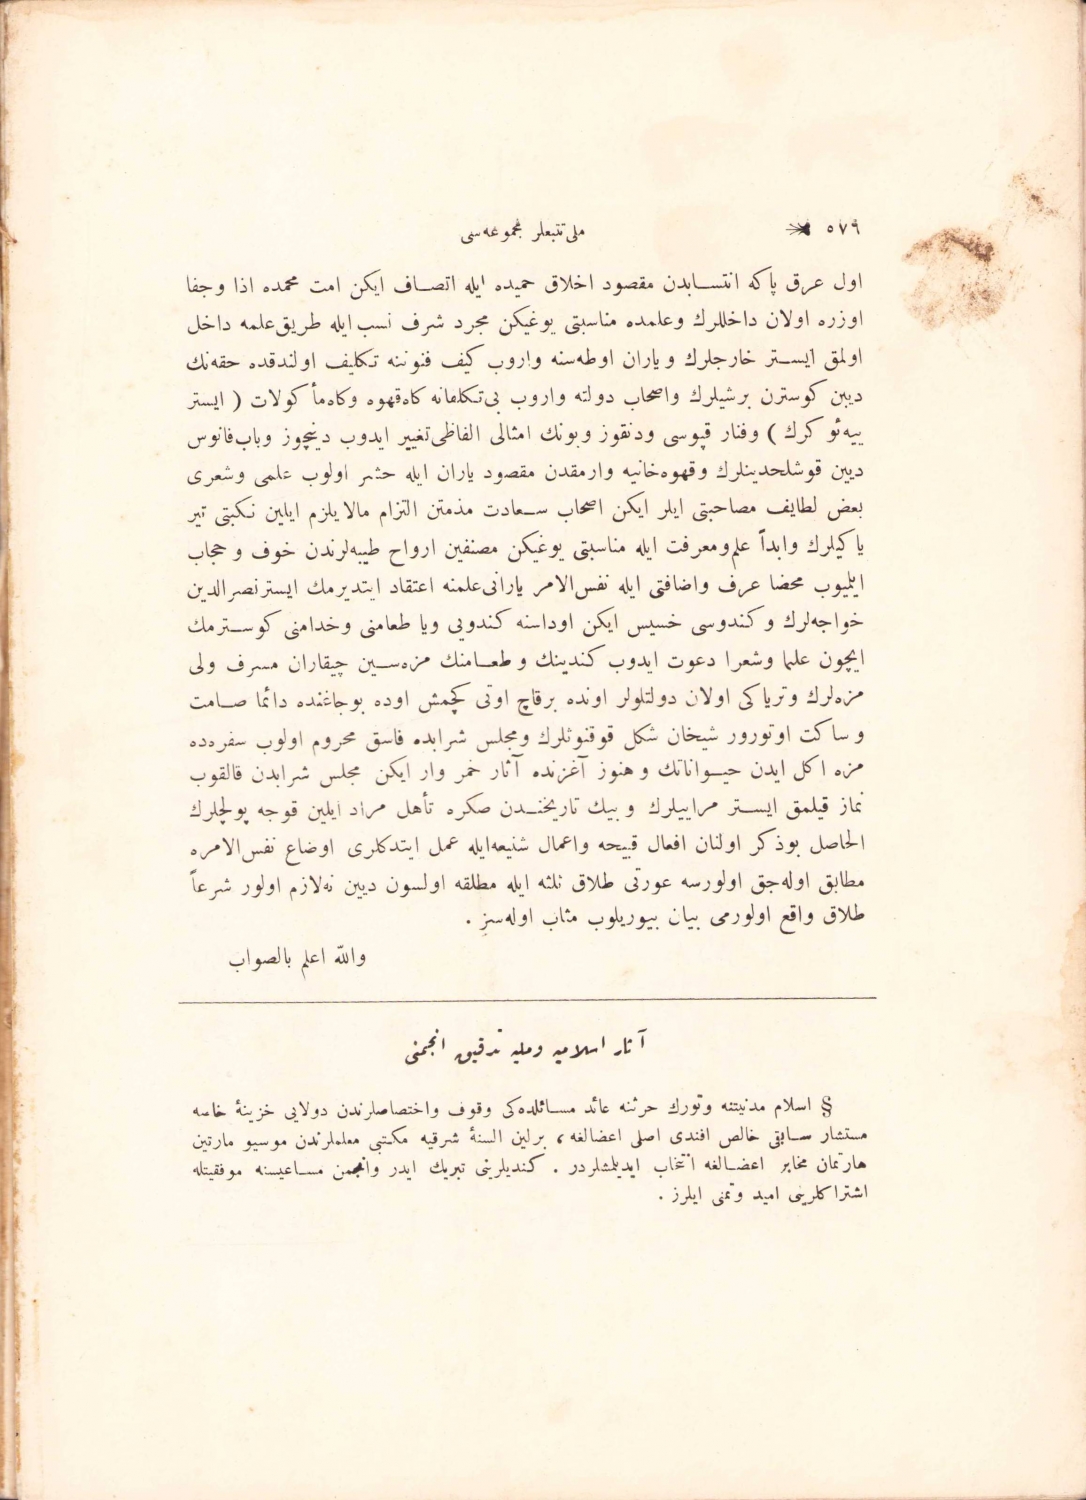 ٥٧٩ ملی تتبعلر مجموعه‌سی
اول عرق پاكه انتسابدن مقصود اخلاق حمیده ایله اتصاف ایكن امت محمده اذا وجفا
اوزره اولان داخللرك وعلمده مناسبتی یوغیكن مجرد شرف نسب ایله طریق علمه داخل
اولمق ایستر خارجلرك ویاران اوطه‌سنه واروب كیف فنوننه تكلیف اولندقده حقه‌نك
دیبن كوسترن برشیلرك واصحاب دولته واروب بی‌تكلفانه كاه قهوه وكاه مأكولات ( ایستر
ییه‌ئو كرك ) وفنار قپوسی ودنقوز وبونك امثالی الفاظی تغییر ایدوب دیچوز وباب فانوس
دیین قوشلحدینلرك وقهوه‌خانیه وارمقدن مقصود یاران ایله حشر اولوب علمی وشعری
بعض لطایف مصاحبتی ایلر ایكن اصحاب سعادت مذمتن التزام مالا یلزم ایلین نكبتی تیر
یاكیلرك وابداً علم ومعرفت ایله مناسبتی یوغیكن مصنفین ارواح طیبه‌لرندن خوف وحجاب
ایلمیوب محضا عرف واضافتی ایله نفس الامر یارانی علمنه اعتقاد ایتدیرمك ایستر نصرالدین
خواجه‌لرك وكندوسی خسیس ایكن اوداسنه كندویی ویا طعامنی وخدامنی كوسترمك
ایچون علما وشعرا دعوت ایدوب كندینك وطعامنك مزه‌سین چیقاران مسرف ولی
مزه‌لرك وتریاكی اولان دولتلولر اونده برقاچ اوتی كچمش اوده بوجاغنده دائما صامت
وساكت اوتورور شیخان شكل قوقنوئلرك ومجلس شرابده فاسق محروم اولوب سفره‌ده
مزه اكل ایدن حیواناتك وهنوز آغزنده آثار خمر وار ایكن مجلس شرابدن قالقوب
نماز قیلمق ایستر مراییلرك وبیك تاریخندن صكره تأهل مراد ایلین قوجه پولچلرك
الحاصل بوذكر اولنان افعال قبیحه واعمال شنیعه ایله عمل ایتدكلری اوضاع نفس الامره
مطابق اوله‌جق اولورسه عورتی طلاق ثلثه ایله مطلقه اولسون دیین نه‌لازم اولور شرعاً
طلاق واقع اولورمی بیان بیوریلوب مثاب اوله‌سز .
والله اعلم بالصواب
آثار اسلامیه وملیه تدقیق انجمنی
§ اسلام مدنیتنه وتورك حرثنه عائد مسائلده‌كی وقوف واختصاصلرندن دولایی خزینهٔ خاصه
مستشار سابقی خالص افندی اصلی اعضالغه، برلین السنهٔ شرقیه مكتبی معلملرندن موسیو مارتین
هارتمان مخابر اعضالغه انتخاب ایدیلمشلردر . كندیلرینی تبریك ایدر وانجمن مساعیسنه موفقیتله
اشتراكلرینی امید وتمنی ایلرز .